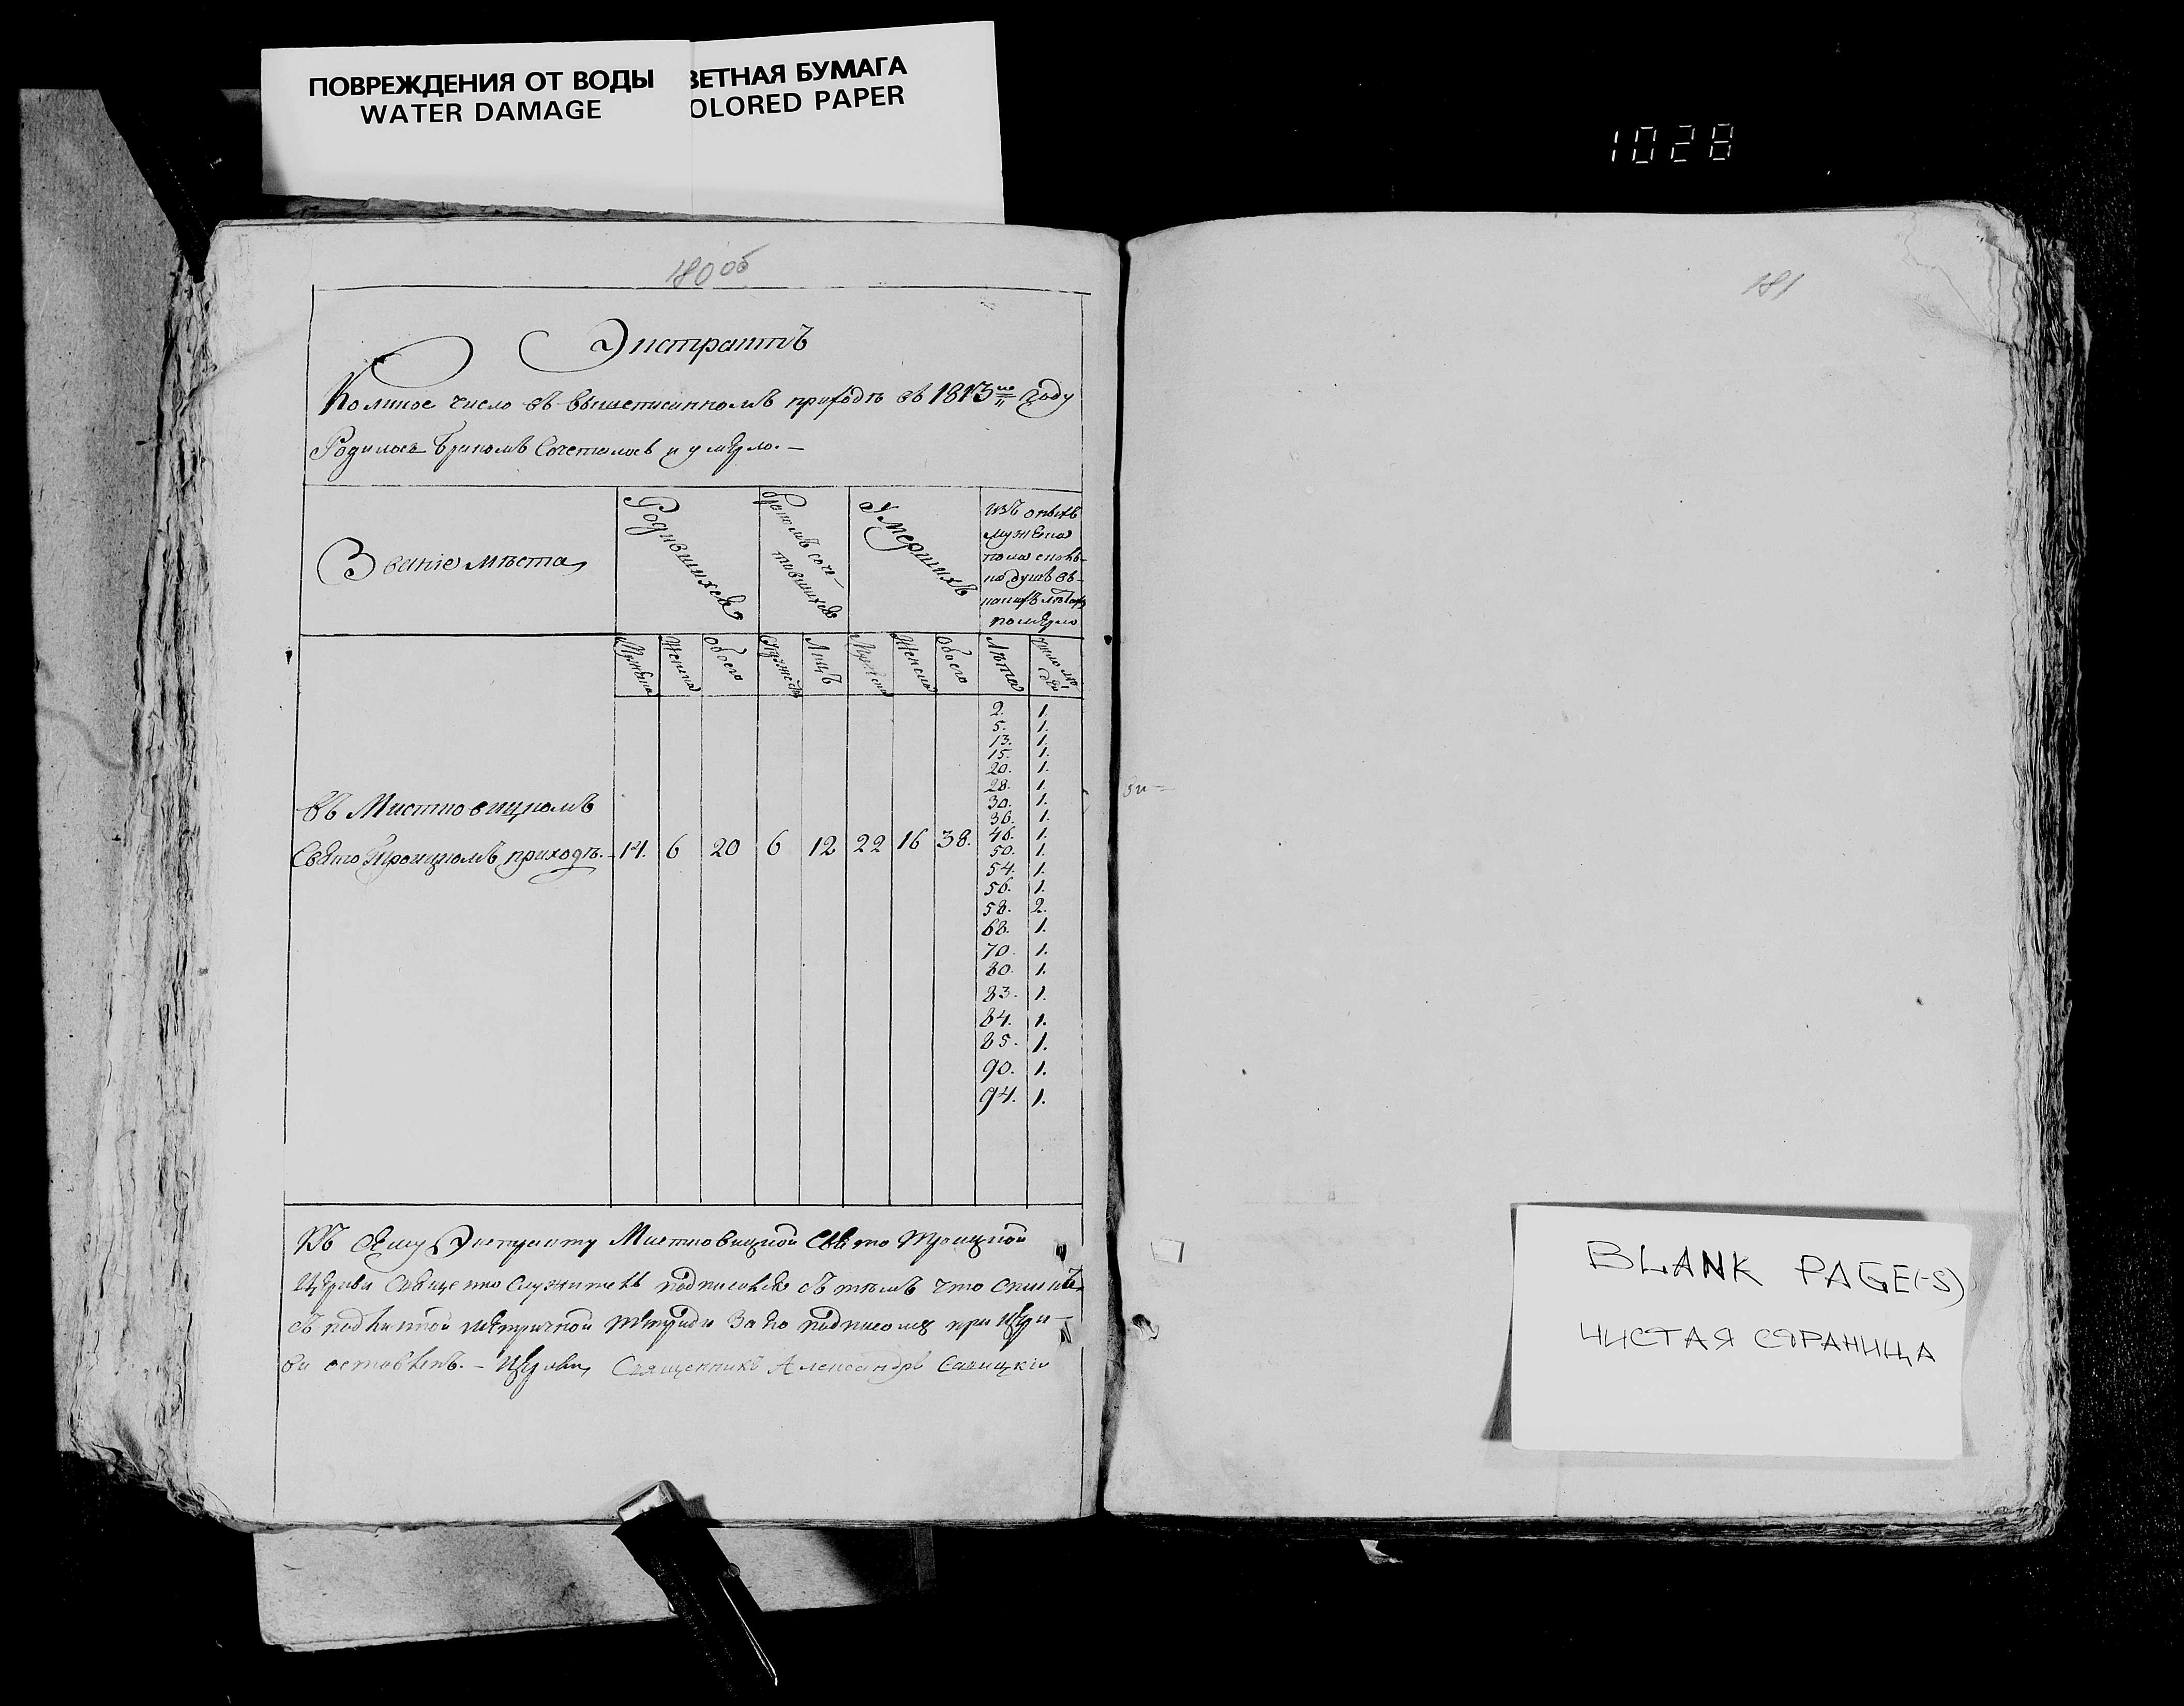 ПОВРЕЖДЕНИЯ ОТ ВОДЫ
WATER DAMAGE
ВЕТНАЯ БУМАГА
OLORED PAPER
1028
180 об
Экстрактъ
Коликое число въ вышеписанномъ приходѣ въ 1813мъ Году
Родилось Бракомъ Сочеталось и умерло. —
Званіе мѣста
Родившихся
Бракомъ соче-
тавшихся
Умершихъ
изъ оныхъ
мужеска
пола сколь-
ко душъ въ
какихъ лѣтахъ
померло
Мужеска
Женска
Обоего
Супружествъ
Лицъ
Мужеска
Женска
Обоего
Лѣта
Число лю-
дей
въ Мистковицкомъ
Свято Троицкомъ приходѣ. 14. 6 20 6 12 22 16 38.
2. 1.
5. 1.
13. 1.
15. 1.
20. 1.
28. 1.
30. 1.
36. 1.
46. 1.
50. 1.
54. 1.
56. 1.
58. 2.
68. 1.
70. 1.
80. 1.
83. 1.
84. 1.
85. 1.
90. 1.
94. 1.
Къ сему Экстракту Мистковицкой Свято Троицкой
Церкви Священно Служитель подписался съ тѣмъ что
съ подлинной метричной тетради За по подписомъ при Церк-
ви оставленъ. — Церкви Священникъ Александръ Савицкій
181
ви =
BLANK PAGE(-S)
ЧИСТАЯ СТРАНИЦА